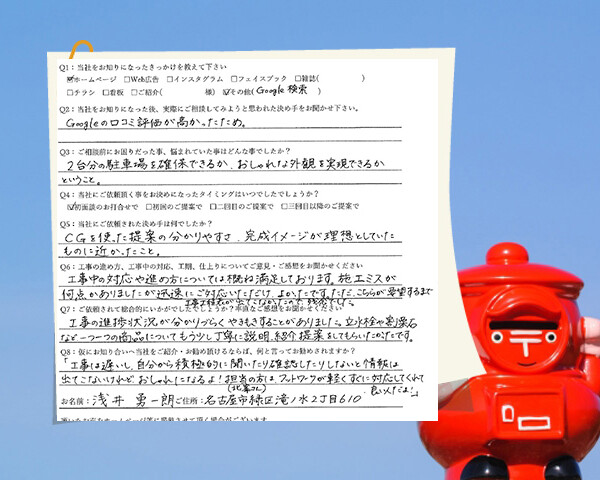 Q1：当社をお知りになったきっかけを教えて下さい
☑ホームページ □Web広告 □インスタグラム □フェイスブック □雑誌( )
□チラシ □看板 □ご紹介( 様) ☑その他(Google 検索 )
Q2：当社をお知りになった後、実際にご相談してみようと思われた決め手をお聞かせ下さい。
Googleの口コミ評価が高かったため。
Q3：ご相談前にお困りだった事、悩まれていた事はどんな事でしたか？
2台分の駐車場を確保できるか、おしゃれな外観を実現できるか
ということ。
Q4：当社にご依頼頂く事をお決めになったタイミングはいつでしたでしょうか？
☑初面談のお打合せで □初回のご提案で □二回目のご提案で □三回目以降のご提案で
Q5：当社にご依頼された決め手は何でしたか？
CGを使った提案の分かりやすさ、完成イメージが理想としていた
ものに近かったこと。
Q6：工事の進め方、工事中の対応、工期、仕上りについてご意見・ご感想をお聞かせください
工事中の対応や進め方については概ね満足しております。施工ミスが
何点かありましたが迅速にご対応いただけ、よかったです。ただ、こちらが要望するまで
工事日程表が出てこなかったので残念でした。
Q7：ご依頼されて総合的にいかがでしたでしょうか？率直なご感想をお聞かせください
工事の進捗状況が分かりづらくやきもきすることがありました。立水栓や割栗石
など一つ一つの商品についてもう少し丁寧に説明、紹介、提案をしてもらいたかったです。
Q8：仮にお知り合いへ当社をご紹介・お勧め頂けるならば、何と言ってお勧めされますか？
「工事は遅いし、自分から積極的に聞いたり確認したりしないと情報は
出てこないけれど、おしゃれになるよ！担当の方は、フットワークが軽くすぐに対応してくれて
良い人だよ」
お名前：浅井 勇一朗 ご住所：名古屋市緑区滝ノ水2丁目610